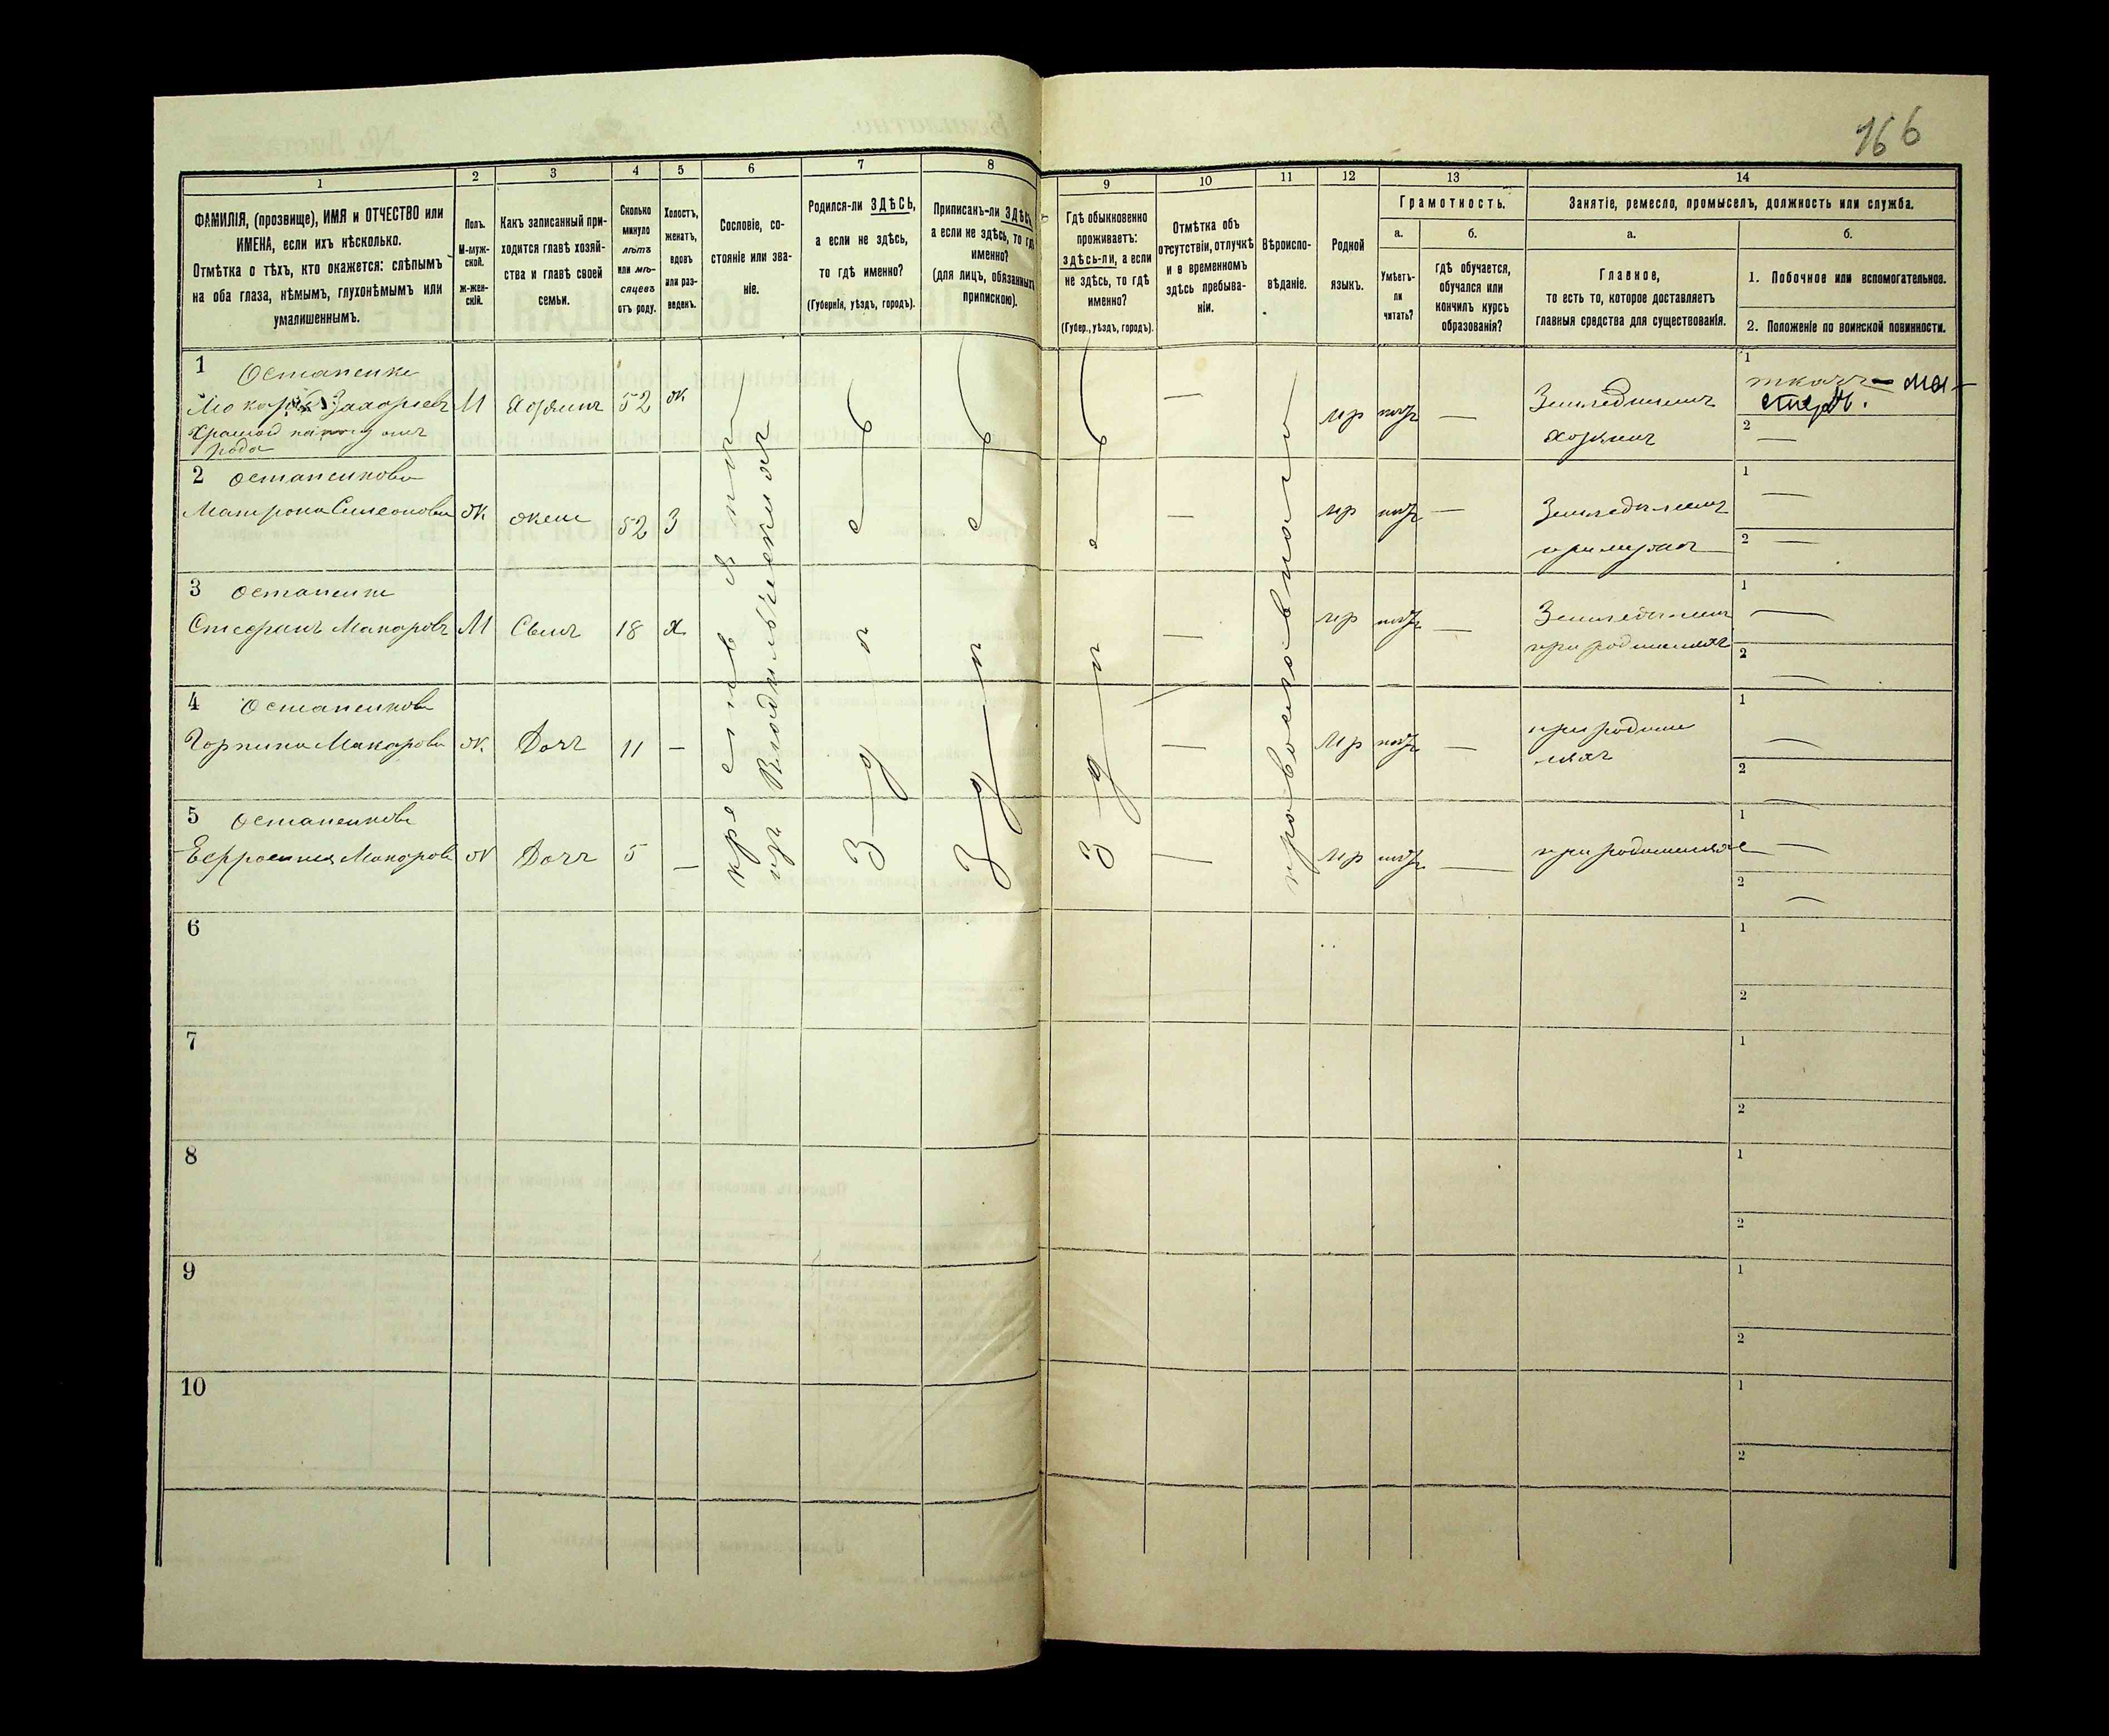 166
1
2
3
4
5
6
7
8
9
10
11
12
13
14
ФАМИЛІЯ, (прозвище), ИМЯ и ОТЧЕСТВО или
ИМЕНА, если ихъ нѣсколько.
Отмѣтка о тѣхъ, кто окажется: слѣпымъ
на оба глаза, нѣмымъ, глухонѣмымъ или
умалишеннымъ.
Полъ.
М-муж-
ской.
ж-жен-
скій.
Какъ записанный при-
ходится главѣ хозяй-
ства и главѣ своей
семьи.
Сколько
минуло
лѣтъ
или мѣ-
сяцевъ
отъ роду.
Холостъ,
женатъ,
вдовъ
или раз-
веденъ.
Сословіе, со-
стояніе или зва-
ніе.
Родился-ли ЗДѢСЬ,
а если не здѣсь,
то гдѣ именно?
(Губернія, уѣздъ, городъ).
Приписанъ-ли ЗДѢСЬ,
а если не здѣсь, то гдѣ
именно?
(для лицъ, обязанныхъ
припискою).
Гдѣ обыкновенно
проживаетъ:
здѣсь-ли, а если
не здѣсь, то гдѣ
именно?
(Губер., уѣздъ, городъ).
Отмѣтка объ
отсутствіи, отлучкѣ
и о временномъ
здѣсь пребыва-
ніи.
Вѣроиспо-
вѣданіе.
Родной
языкъ.
Грамотность.
а.
Умѣетъ-
ли
читать?
б.
гдѣ обучается,
обучался или
кончилъ курсъ
образованія?
Занятіе, ремесло, промыселъ, должность или служба.
а.
Главное,
то есть то, которое доставляетъ
главныя средства для существованія.
б.
1. Побочное или вспомогательное.
2. Положеніе по воинской повинности.
1 Остапенко
Макаръ Захарьевъ М Хозяинъ 52 ж мр нѣтъ — Земледѣлецъ
хозяинъ
1 ткачъ — ма-
стеръ.
2 —
Хромой на ногу отъ
рода
2 Остапенкова
Матрона Симеонова ж жена 52 З — мр нѣтъ — Земледѣлецъ
при мужѣ
1 —
2 —
3 Остапенко
Стефанъ Макаровъ М Сынъ 18 х — мр нѣтъ — Земледѣлецъ
при родителяхъ
1 —
2 —
4 Остапенкова
Горпина Макарова ж Дочь 11 — — мр нѣтъ — при родите
ляхъ
1 —
2 —
5 Остапенкова
Ефросинія Макарова ж Дочь 5 — — мр нѣтъ — при родителяхъ
1 —
2 —
изъ Владѣльческихъ
З д
З д
З д
православнаго
6
1
2
7
1
2
8
1
2
9
1
2
10
1
2